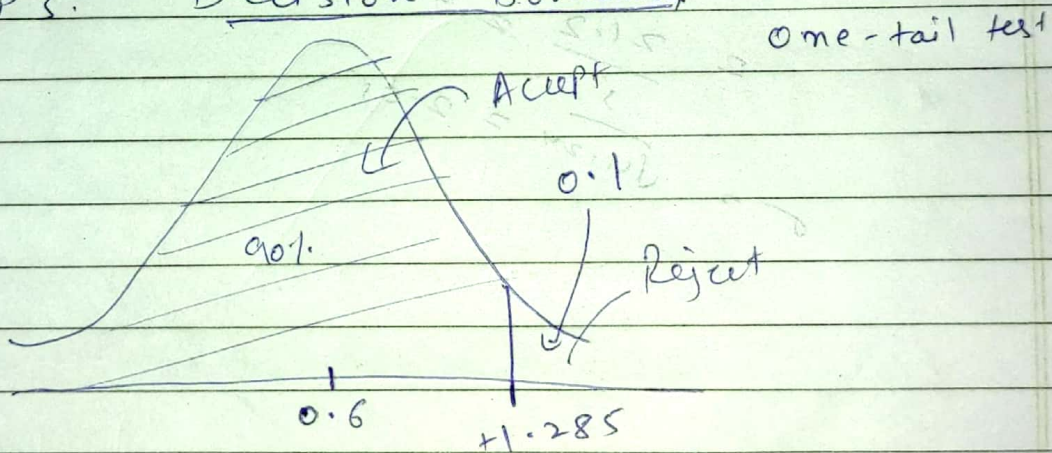 One-tail test
Accept
0.1
90%
Reject
0.6
+1.285